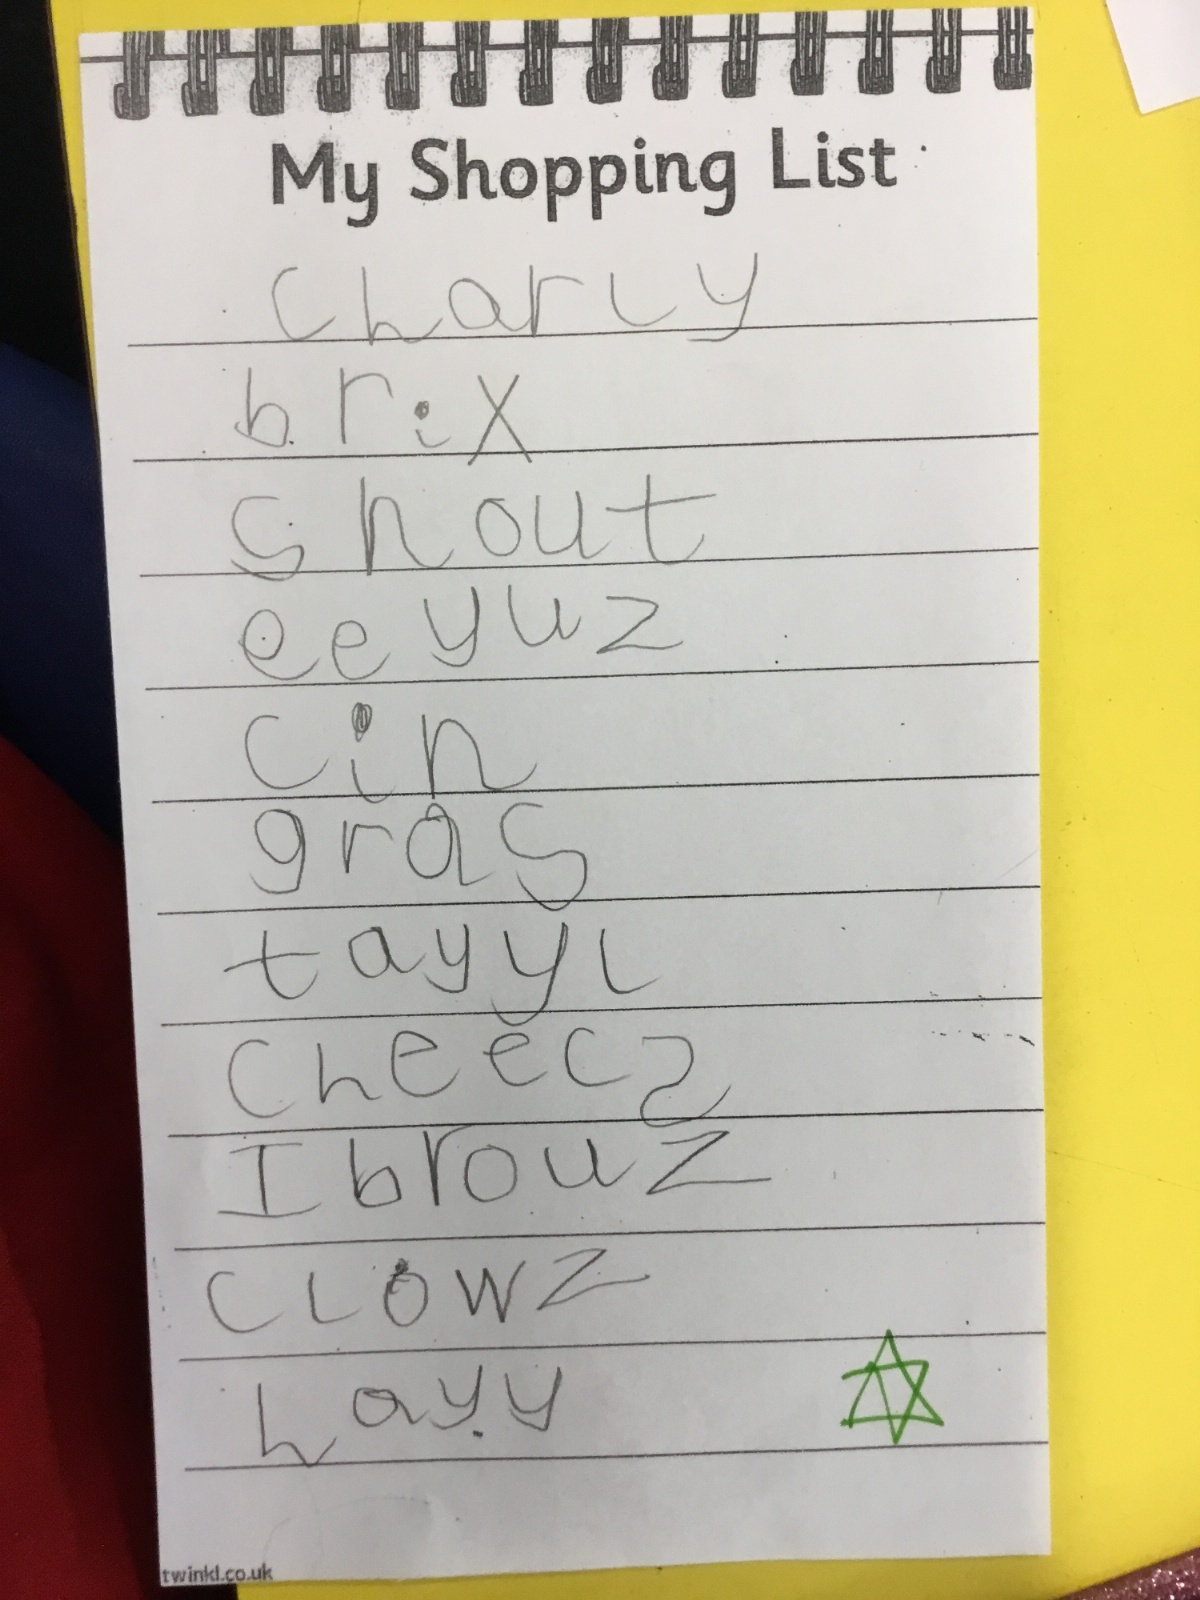 My Shopping List
charly
brix
snout
eeyuz
cin
gras
tayyl
cheecs
Ibrouz
clowz
hayy
twinkl.co.uk